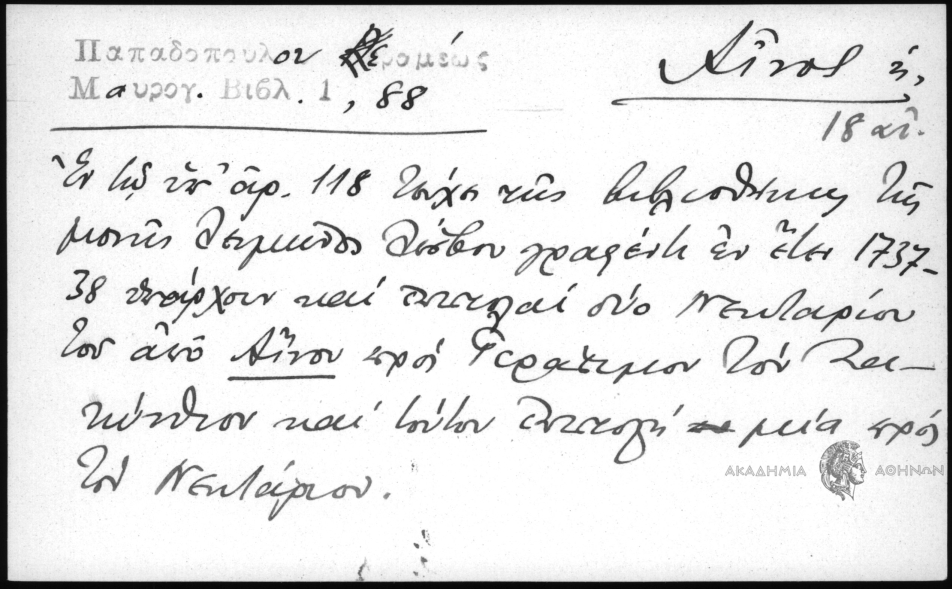 Παπαδοπούλου Κεραμέως
Μαυρογ. Βιβλ. 1, 88
Αἶνος ἡ,
18 αἰ.
Ἐν τῷ ὑπ' ἀρ. 118 τεύχει τῆς βιβλιοθήκης τῆς
μονῆς Λειμῶνος Λέσβου γραφέντι ἐν ἔτει 1737-
38 ὑπάρχουν καί ἐπιστολαί δύο Νεκταρίου
τοῦ ἀπό Αἴνου πρός Γεράσιμον τόν Ζα-
κύνθιον καί τούτου ἐπιστολή μία πρός
τόν Νεκτάριον.
ΑΚΑΔΗΜΙΑ ΑΘΗΝΩΝ